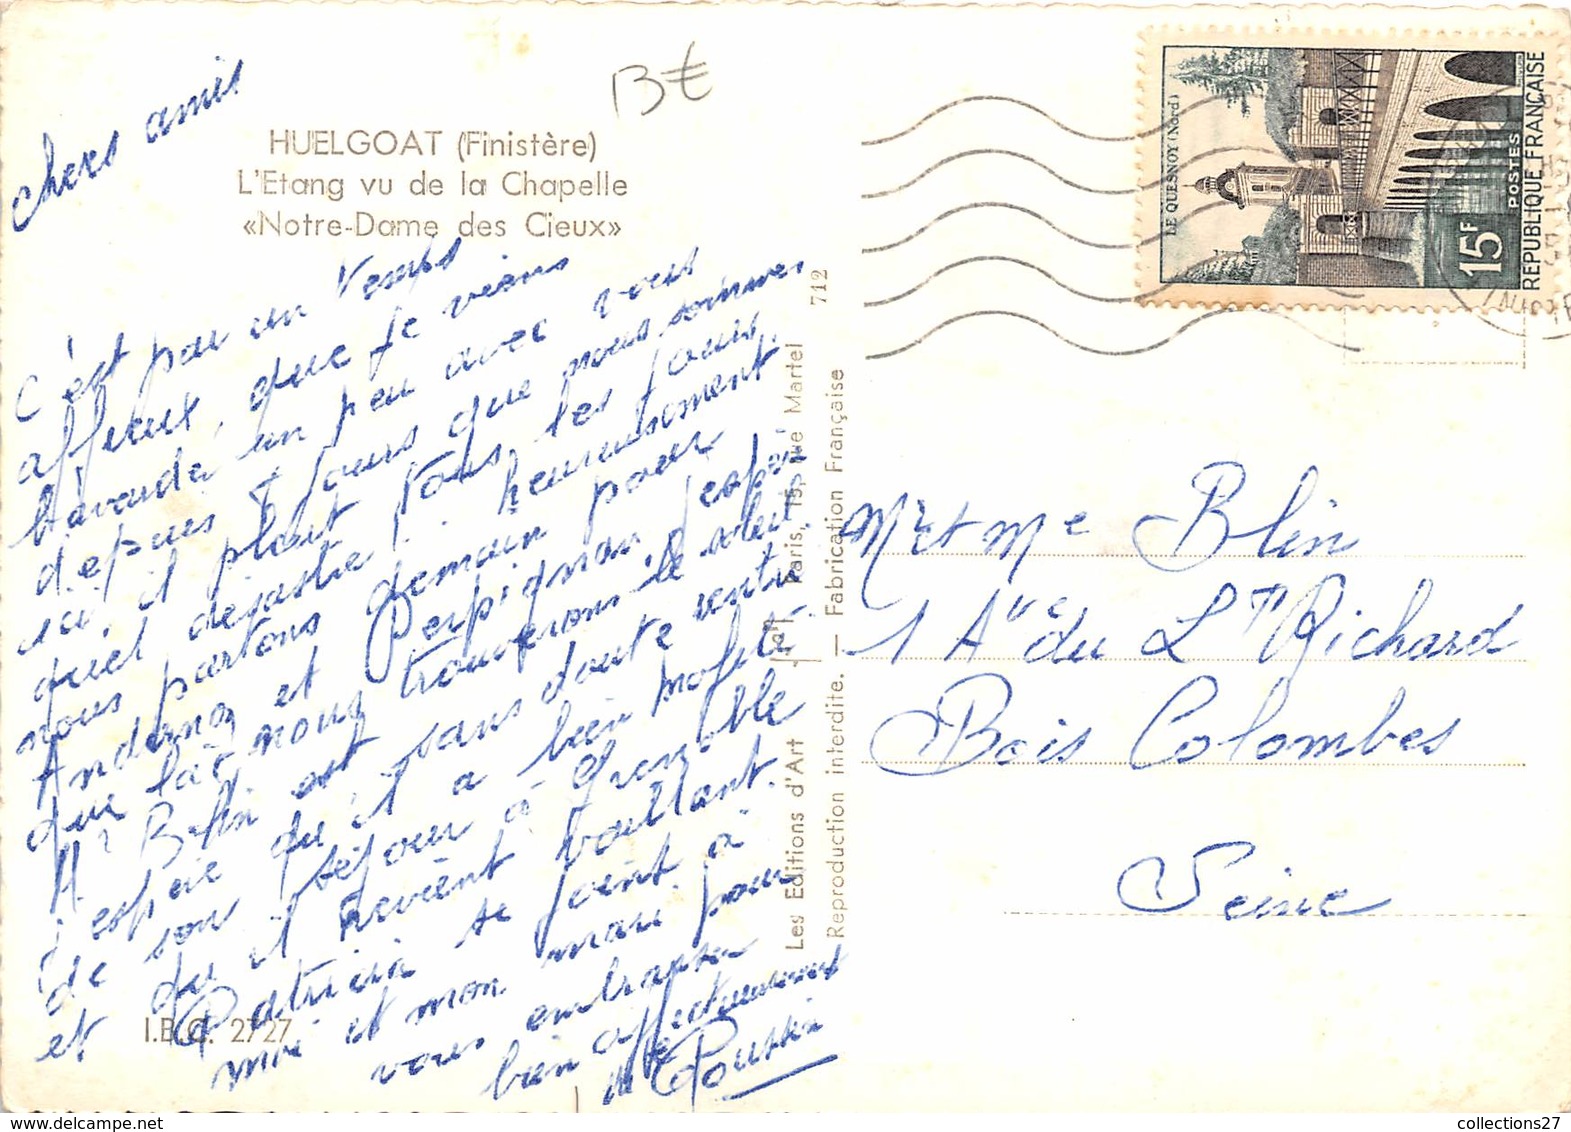 chers amis
B€
HUELGOAT (Finistère)
L'Etang vu de la Chapelle
«Notre-Dame des Cieux»
C'est par un temps
affreux, que je viens
bavardé un peu avec vous
depuis 8 jours que nous sommes
ici, il pleut tous les jours,
quel désastre! heureusement
nous partons demain pour
Andernoz et Perpignan, j'espère
que là nous trouverons le soleil.
Mr Blin est sans doute rentré
j'espère qu'il a bien profité
de son séjour à Grenoble
et qu'il revient
Patricia se joint à
moi et mon mari pour
vous embrasser
bien affectueusement
Poussin
I.B.C. 2727
Les Editions d'Art "Jack" Paris, 15, rue Martel 712
Reproduction interdite. — Fabrication Française
LE QUESNOY (Nord)
15F
POSTES
REPUBLIQUE FRANÇAISE
Mr et Me Blin
1 Ave du Lt Richard
Bois Colombes
Seine
collections27